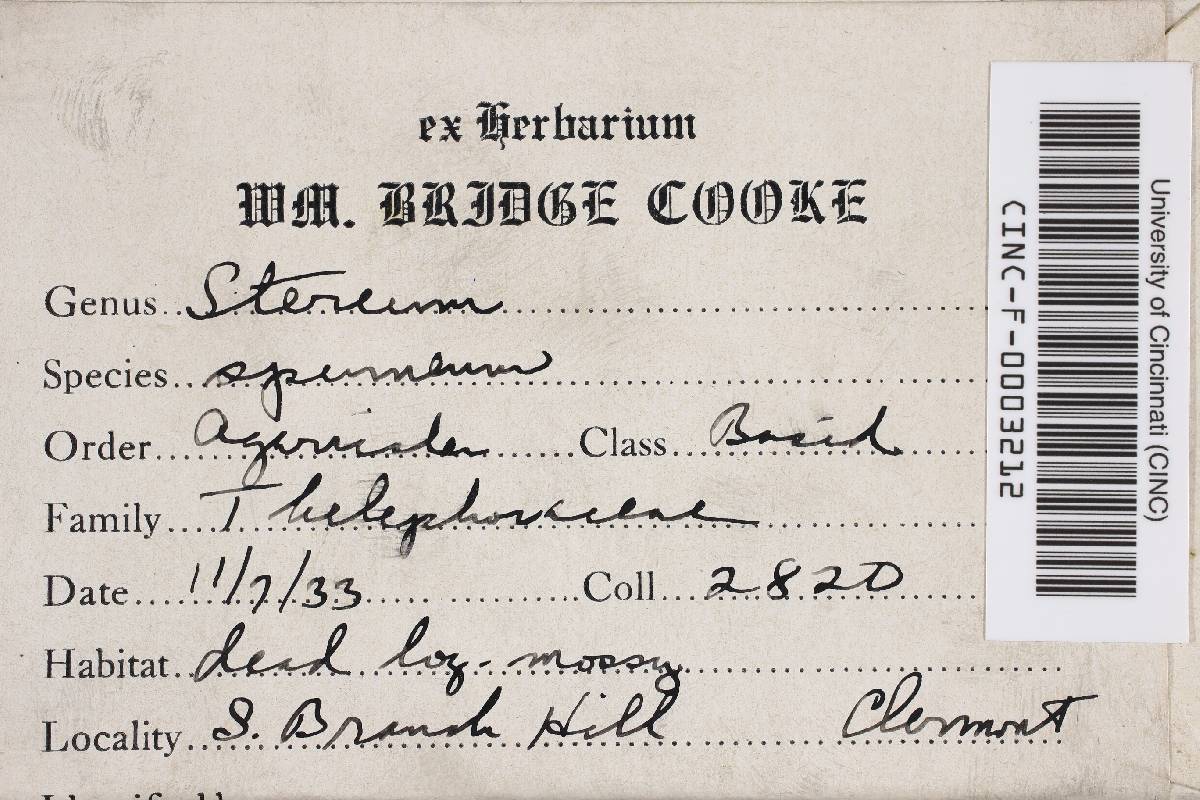 ex Herbarium
WM. BRIDGE COOKE
Genus Stereum
Species spumeum
Order Agaricales Class Basid
Family Thelephoraceae
Date 11/7/33 Coll 2820
Habitat dead log - mossy
Locality S. Branch Hill Clermont
University of Cincinnati (CINC)
CINC-F-0003212